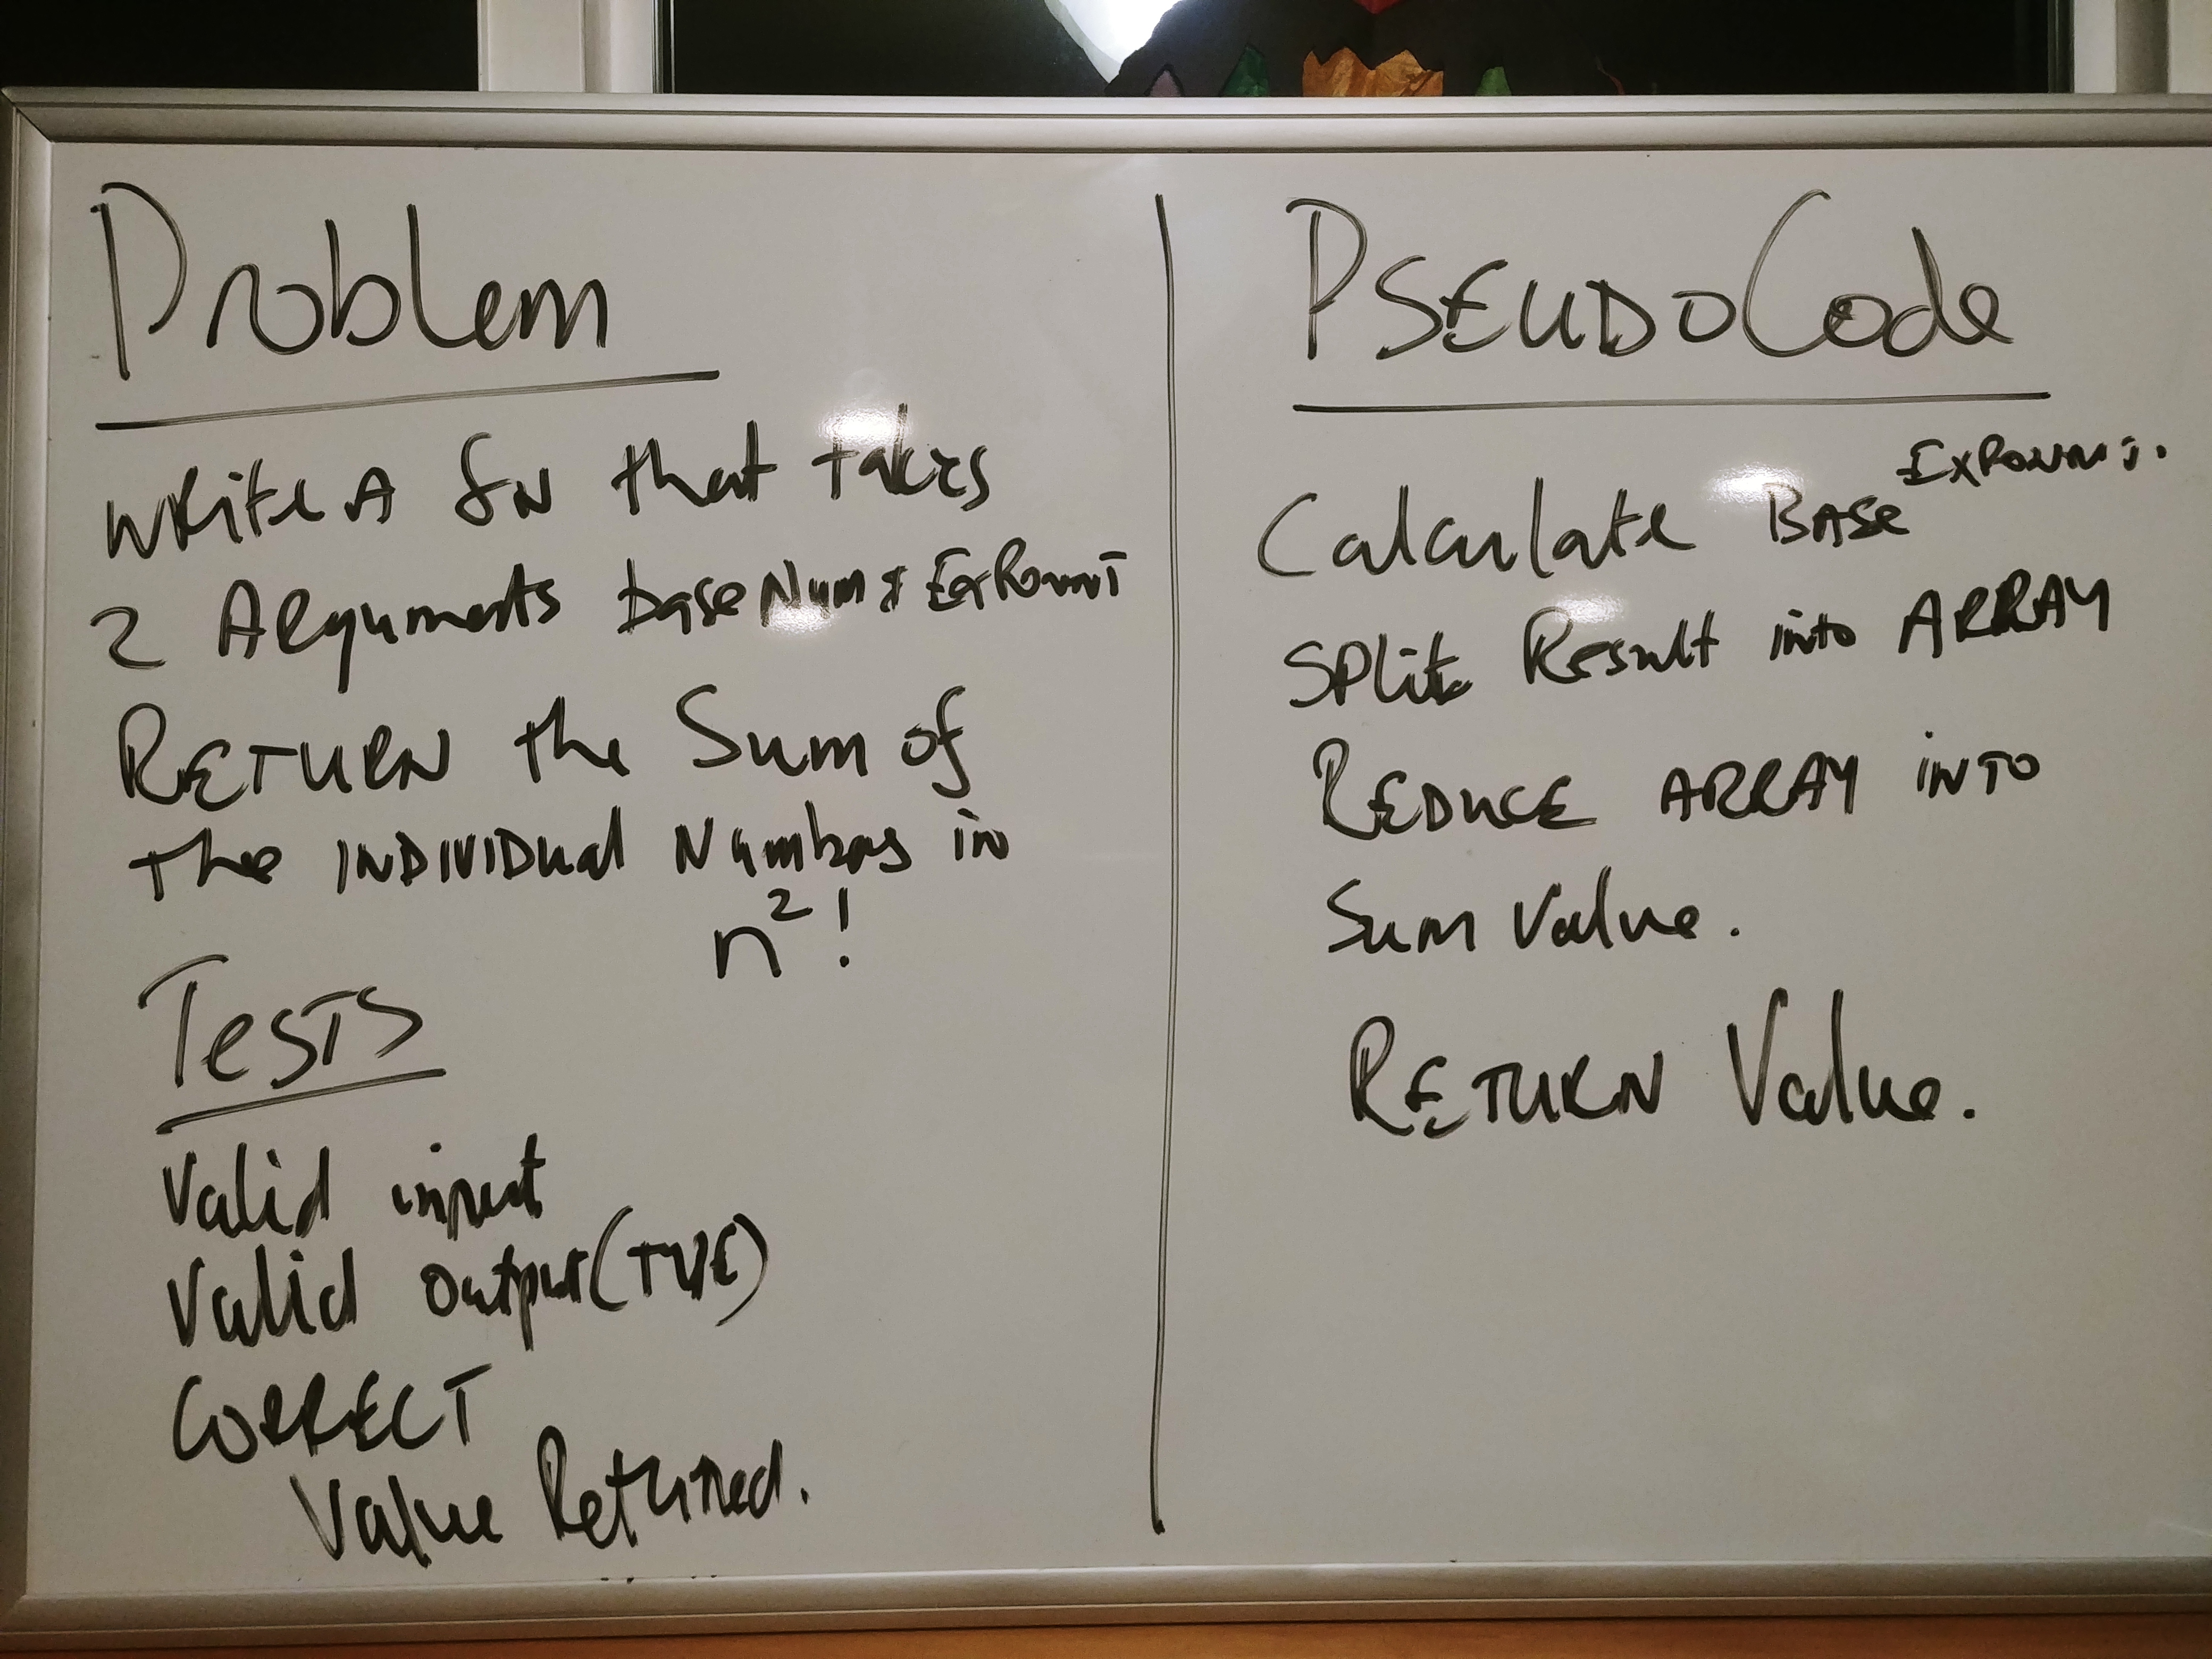 Problem
Write A fn that takes
2 Arguments baseNum & Exponent
RETURN the Sum of
the INDIVIDual Numbers in
n²!
Tests
Valid input
Valid output (TYPE)
CORRECT
Value Returned.
PSEUDOCode
Calculate BASE Exponent.
Split Result into ARRAY
REDUCE ARRAY INTO
Sum Value.
RETURN Value.